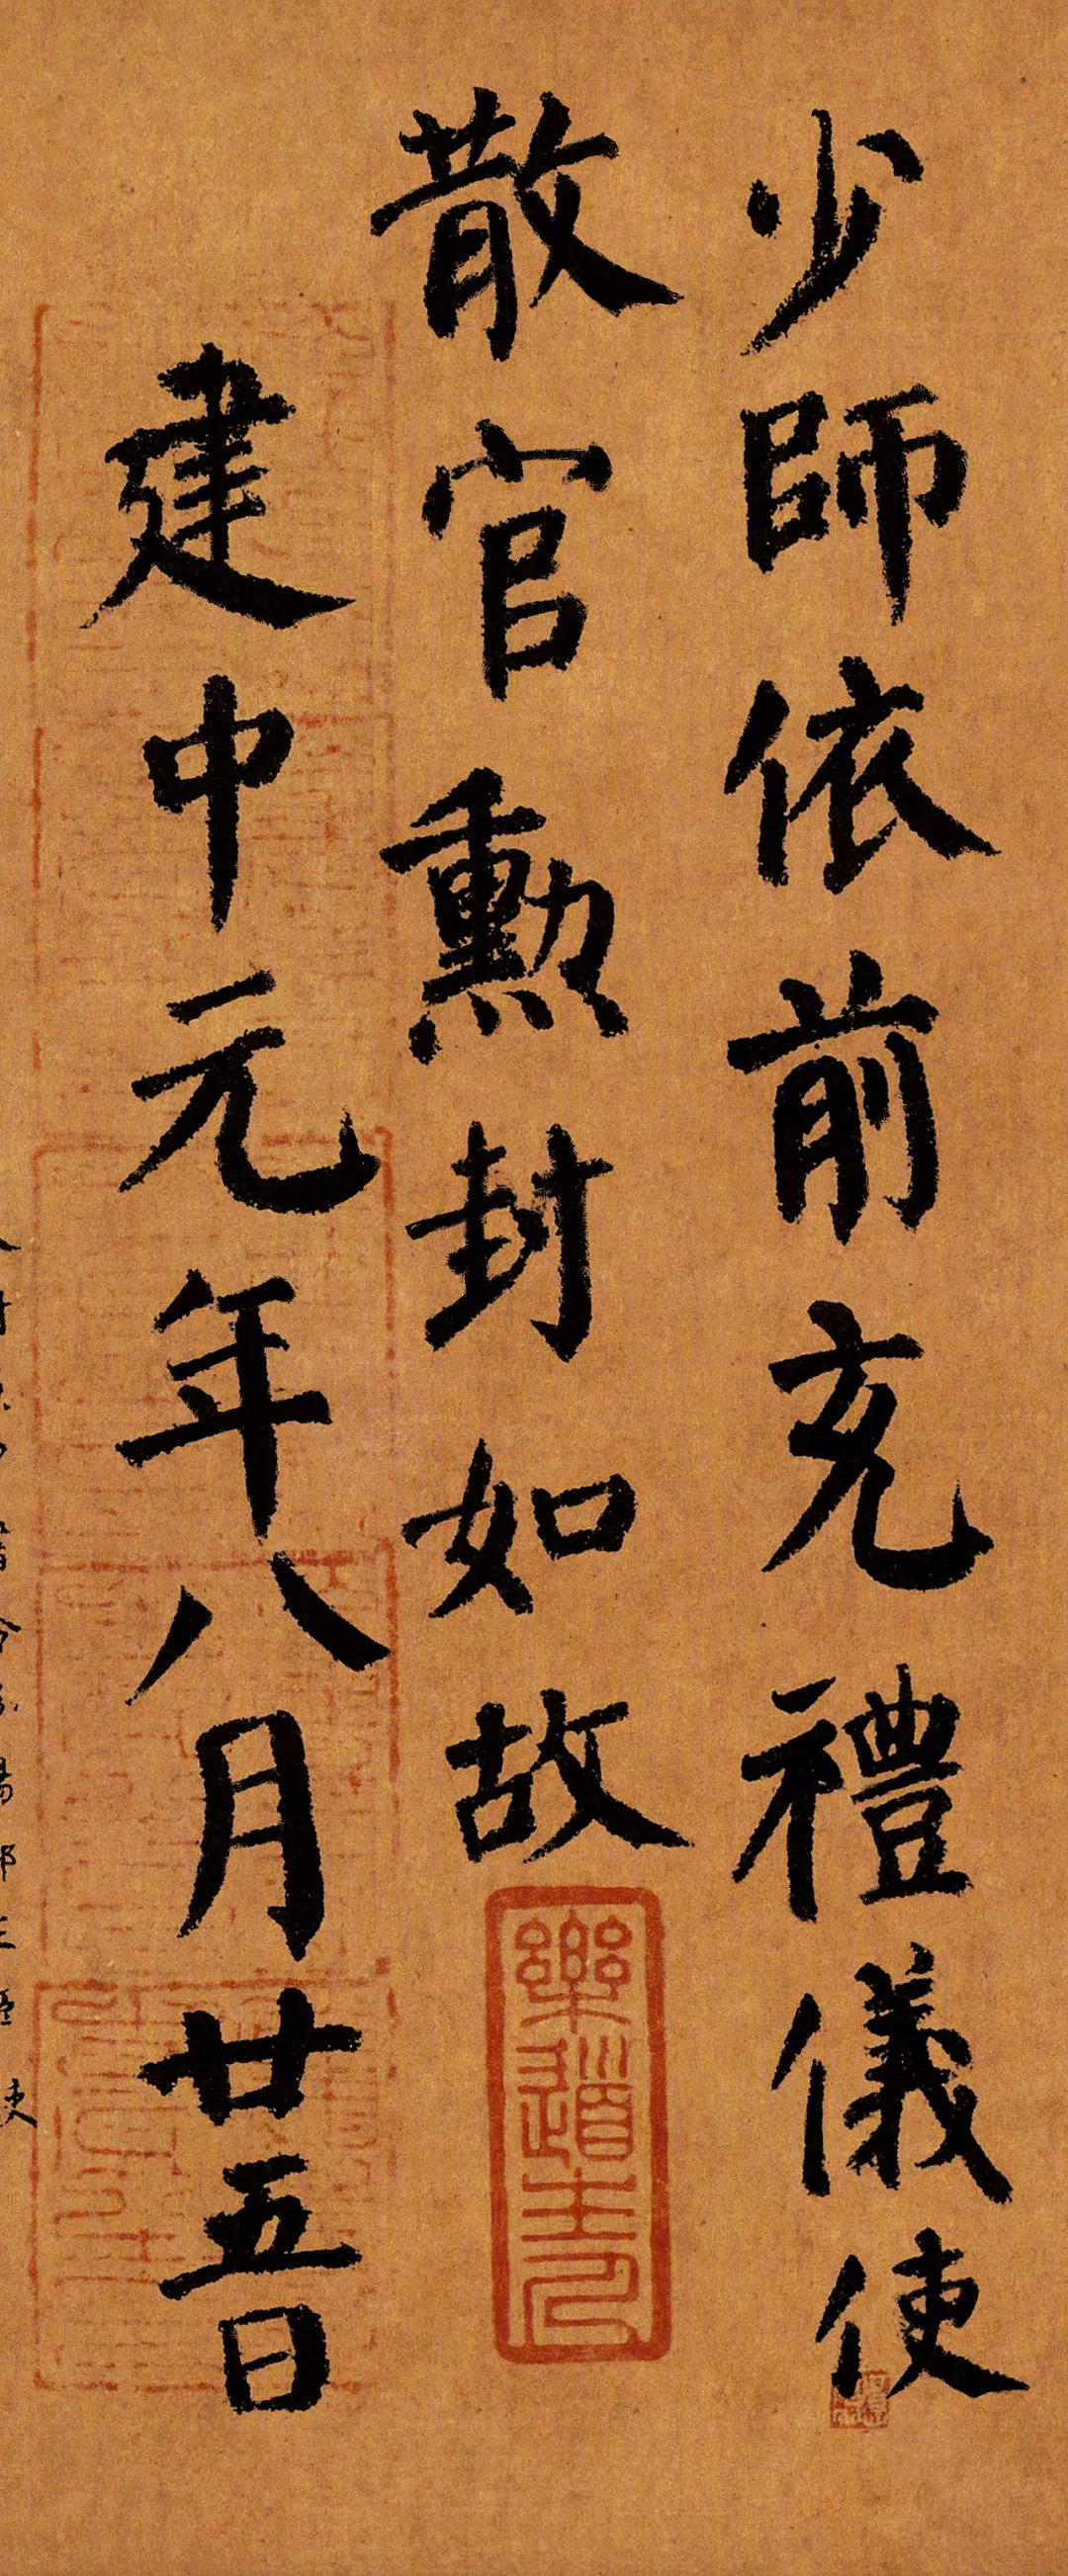 少師依前充禮儀使
散官勳封如故
建中元年八月廿五日
樂道主人